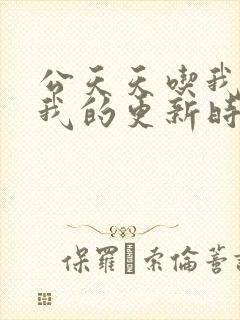 公天天喫我
我的更新時
保羅·索倫蒂